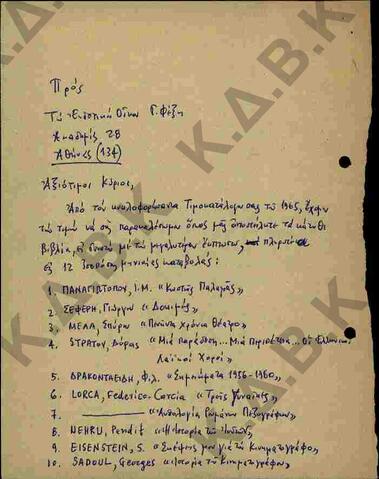 Πρός
Τὸν Ἐκδοτικὸ Οἶκον Γ. Φέξη
Ἀκαδημίας 28
Ἀθήνας (134)
Ἀξιότιμοι Κύριοι,
Ἀπὸ τὸν κυκλοφορήσαντα Τιμοκατάλογόν σας τοῦ 1965, ἔχομεν
τὴν τιμὴν νὰ σᾶς παρακαλέσωμεν ὅπως μᾶς ἀποστείλητε τὰ κάτωθι
βιβλία, εἰ δυνατὸν μὲ τὴν μεγαλυτέραν ἔκπτωσιν,
εἰς 12 ἰσοπόσους μηνιαίας καταβολάς:
1. ΠΑΝΑΓΙΩΤΟΠΟΥΛΟΥ, Ι.Μ. «Κωστῆς Παλαμᾶς»
2. ΣΕΦΕΡΗ, Γιώργου «Δοκιμές»
3. ΜΕΛΑ, Σπύρου «Πενῆντα χρόνια θέατρο»
4. ΣΤΡΑΤΟΥ, Δόρας «Μιὰ παράδοση... Μιὰ περιπέτεια... Οἱ Ἑλληνικοὶ
Λαϊκοὶ Χοροί»
5. ΔΡΑΚΟΝΤΑΕΙΔΗ, Φιλ. «Σημειώματα 1956-1960»
6. LORCA, Federico-Garcia «Τρεῖς Γυναῖκες»
7. «Ἀνθολογία Ρωμάνων Πεζογράφων»
8. NEHRU, Pandit «Ἱστορία τῶν Ἰνδιῶν»
9. EISENSTEIN, S. «Σκέψεις μου γιὰ τὸν Κινηματογράφο»
10. SADOUL, Georges «Ἱστορία τοῦ Κινηματογράφου»
Κ.Δ.Β.Κ